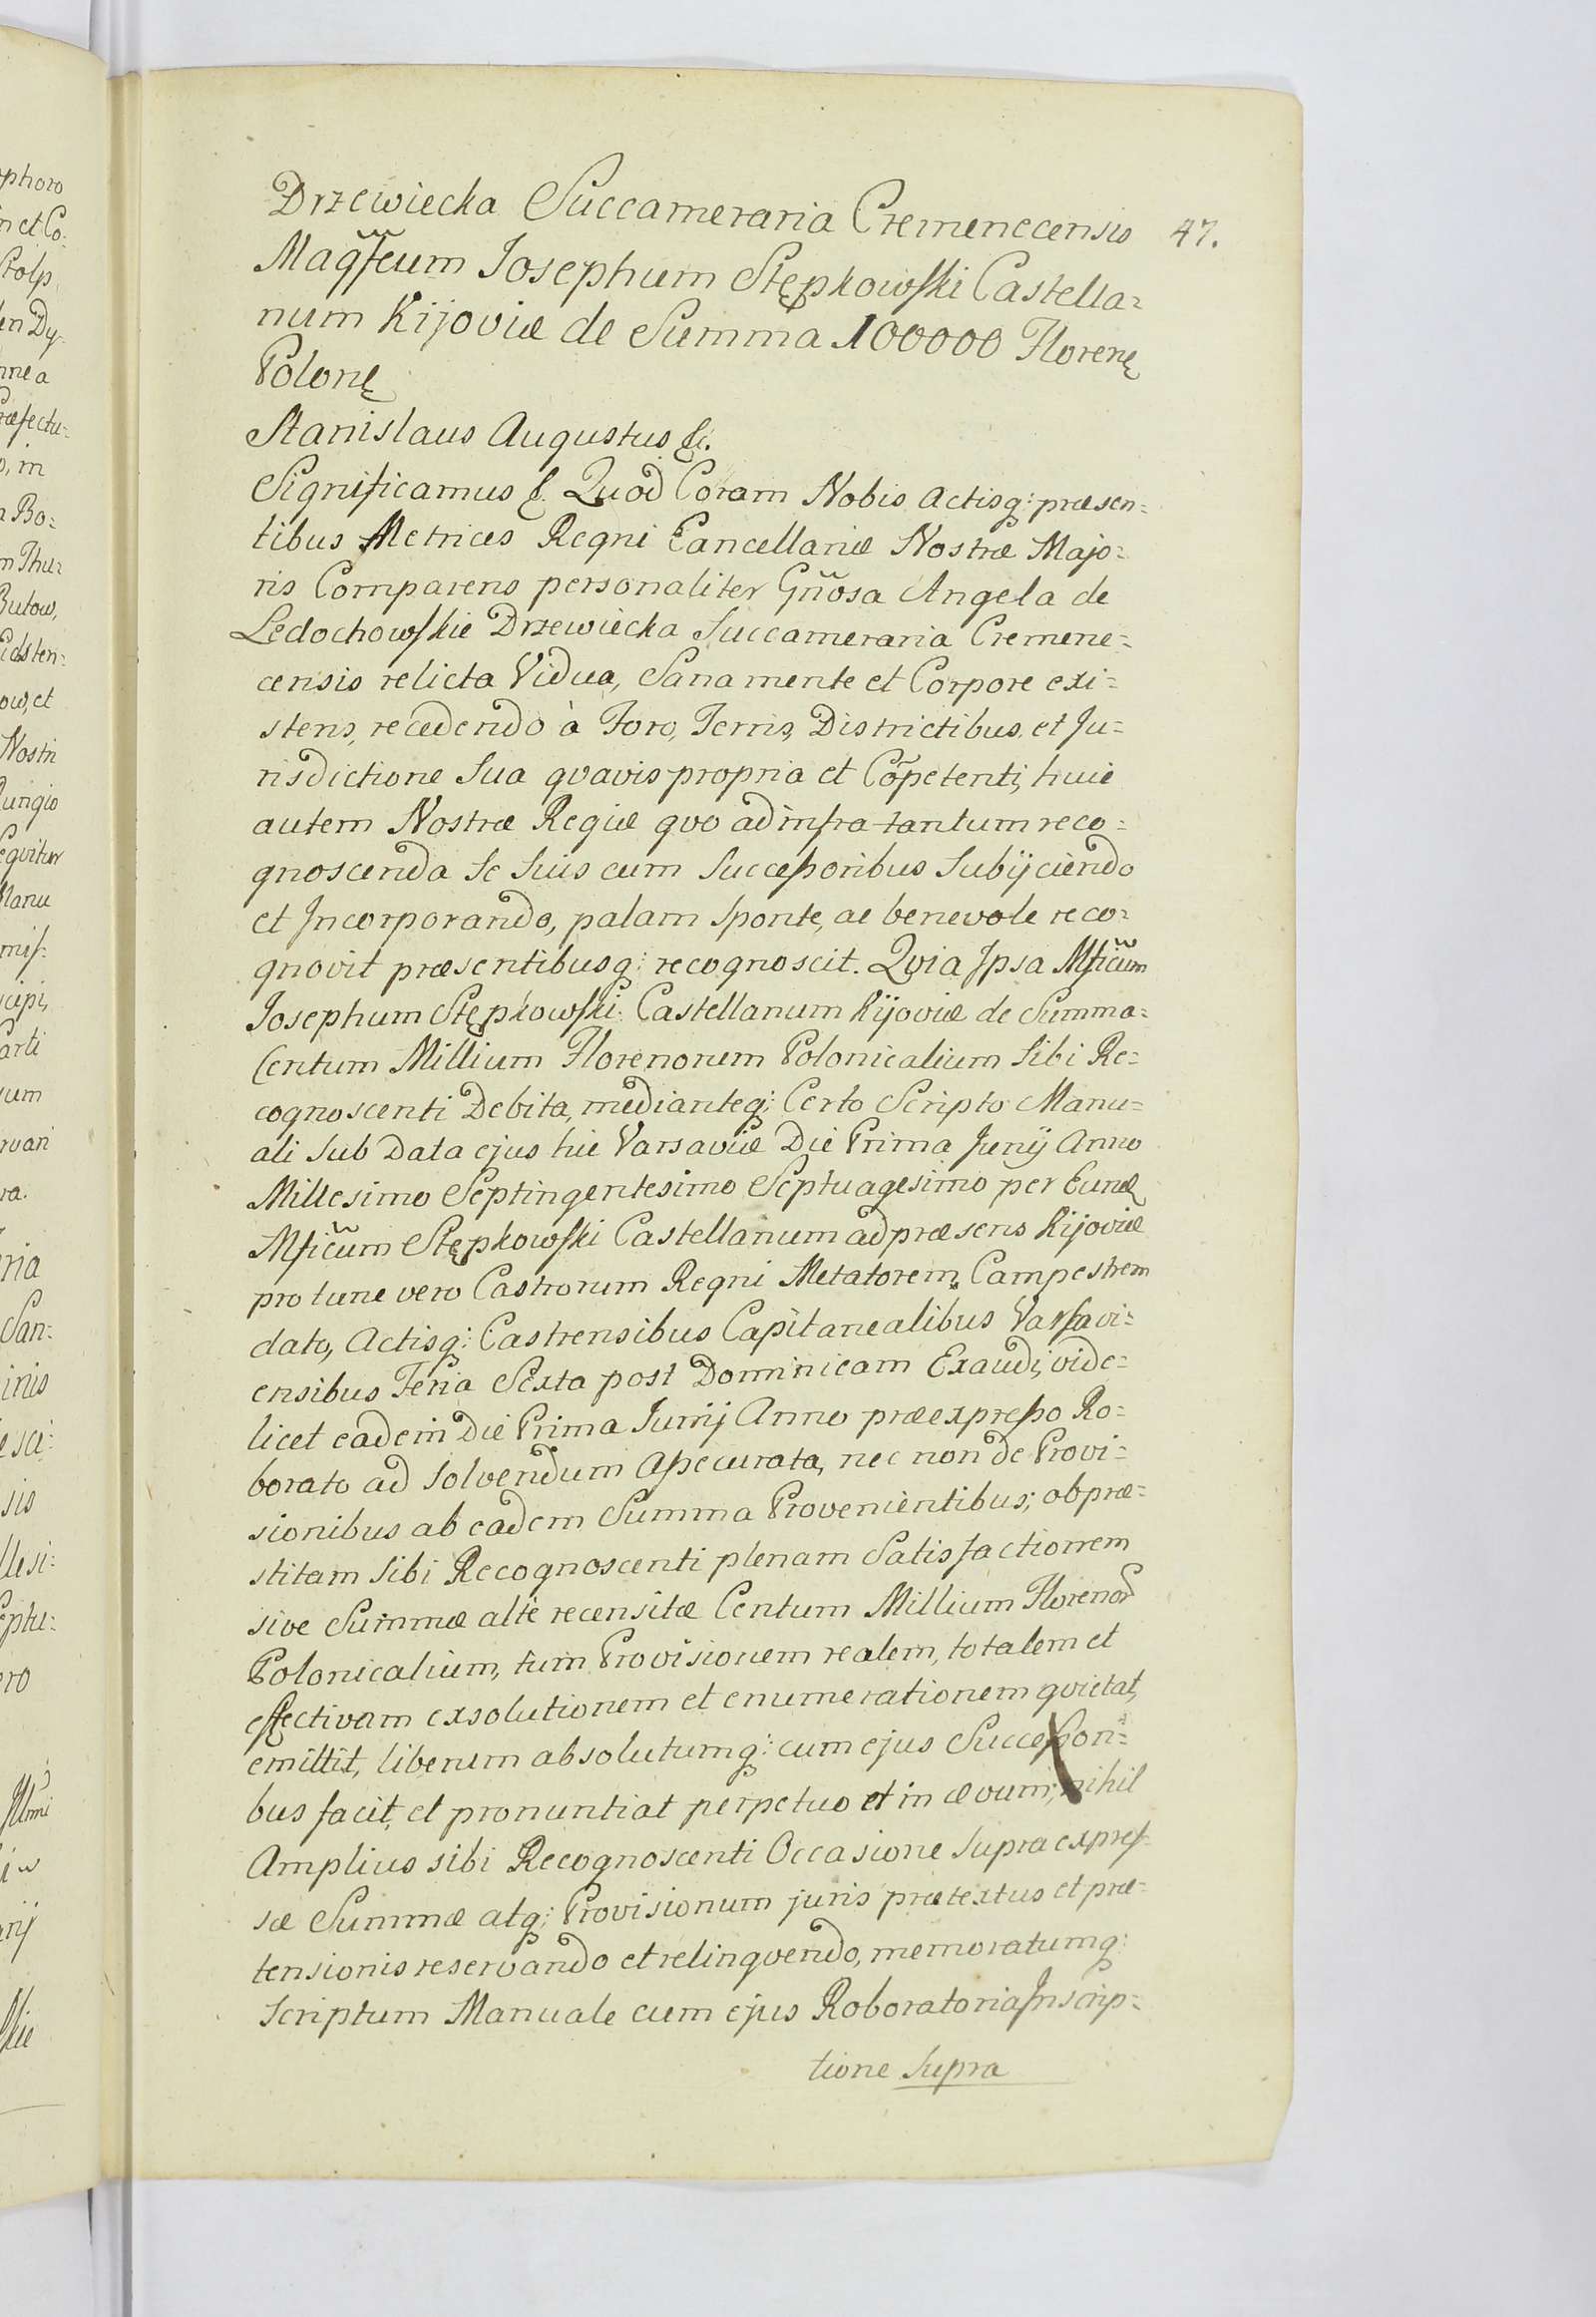 Drzewiecka Succameraria Cremenecensis 47.
Magfcum Josephum Stępkowski Castella=
num Kijoviæ de Summa 100000 Floren
Polon
Stanislaus Augustus &.
Significamus &. Quod Coram Nobis Actisq: præsen=
tibus Metrices Regni Cancellariæ Nostræ Majo=
ris Comparens personaliter Gñosa Angela de
Ledochowskie Drzewiecka Succameraria Cremene=
censis relicta Vidua, Sana mente et Corpore exi=
stens, recedendo à Foro, Terris, Districtibus, et Ju=
risdictione Sua qvavis propria et Cõpetenti, huic
autem Nostræ Regiæ qvo ad infra tantum reco=
gnoscenda Se Suis cum Successoribus Subijciendo
et Incorporando, palam Sponte, ac benevole reco=
gnovit præsentibusq: recognoscit. Qvia Ipsa Mficum
Josephum Stępkowski Castellanum Kijoviæ de Summa=
Centum Millium Florenorum Polonicalium Sibi Re=
cognoscenti Debita, medianteq: Certo Scripto Manu=
ali Sub Data ejus hic Varsaviæ Die Prima Junij Anno
Millesimo Septingentesimo Septuagesimo per Eund
Mficum Stępkowski Castellanum ad præsens Kijoviæ
pro tunc vero Castrorum Regni Metatorem Campestrem
dato, Actisq: Castrensibus Capitanealibus Varsavi=
ensibus Feria Sexta post Dominicam Exaudi, vide=
licet eadem Die Prima Junij Anno præexpresso Ro=
borato ad Solvendum Assecurata, nec non de Provi=
sionibus ab eadem Summa Provenientibus; ob præ=
stitam Sibi Recognoscenti plenam Satisfactionem
sive Summæ alte recensitæ Centum Millium Florenor
Polonicalium, tum Provisionem realem, totalem et
effectivam exsolutionem et enumerationem qvietat,
emittit, liberum absolutumq: cum ejus Successori=
bus facit, et pronuntiat perpetuo et in ævum; nihil
Amplius sibi Recognoscenti Occasione Supra expres=
sæ Summæ atq: Provisionum juris prætextus et præ=
tensionis reservando et relinqvendo, memoratumq:
Scriptum Manuale cum ejus Roboratoria Inscrip=
tione Supra